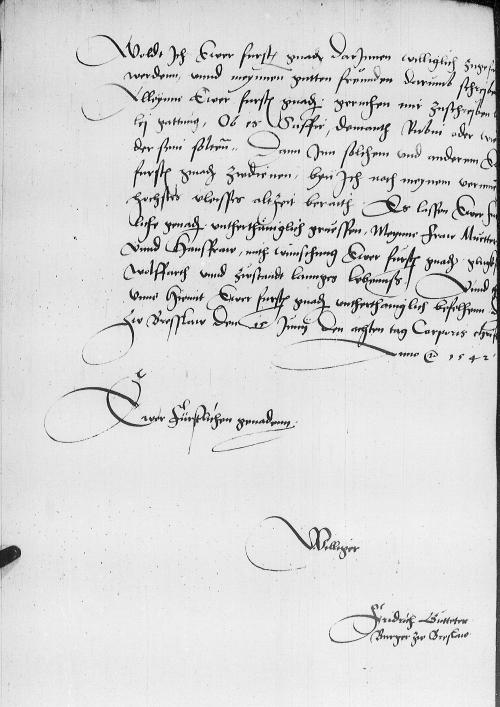 Woldt Ich Ewer furstl gnadt darInnen williglich
werdenn, vnnd meynnen gutten freunden darumb schreiben
Alleynne Ewer furstl gnadt geruhen mir zuschreiben
lei gattung, Ob es Saffir, demanth Rubin oder
der sein solten. Dann Inn solchem vnd anderem
furstl gnadt zwdienen, byn Ich nach meynem
hochstes vleysses altzeit berait. Es lassen Ewer
liche gnadt vntherthäniglich gruessen, Meyne Fraw Mutter
vnnd Hausfraw, mit wunschung Ewer furstl gnadt
wolffarth vnd zustandt langes lebennß. Vnnd
vnns hiemit Ewer furstl gnadt vntherthaniglich befelhenn
Zw Bresslaw Den 15 Junij Den achten tag Corporis christi
Anno 1542
Ewer Fürstlichen genadenn
Williger
Fridrich Gutteter
Burger zw Breslaw